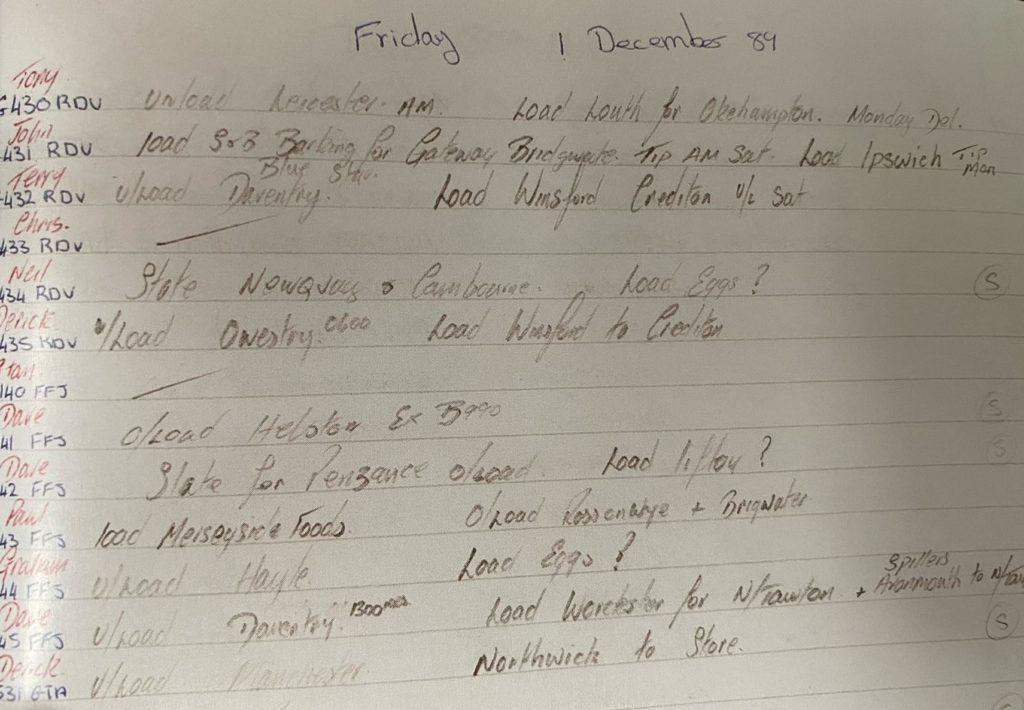 Friday 1 December 89
Tony
G430 RDV Unload Leicester. AM. Load Louth for Okehampton. Monday Del.
John
431 RDV load Barking for Gateway Bridgwate. Tip AM Sat. Load Ipswich Tip Mon
Terry Blue Star.
432 RDV u/Load Daventry. Load Winsford Crediton u/L Sat
Chris.
433 RDV
Neil
434 RDV State Newquay & Cambourne. Load Eggs? S
Derick
435 RDV u/Load Oswestry. 0600 Load Winsford to Crediton
Stan
140 FFJ
Dave S
41 FFJ O/Load Helston Ex
Dale S
42 FFJ Slate for Penzance o/Load. Load ?
Paul
43 FFJ load Merseyside Foods. O/Load Rossonwye + Brigwater
Graham
44 FFJ u/Load Hayle. Load Eggs?
Dave Spillers
45 FFJ u/Load Daventry. 1300 Load Worcester for N/Tawton + Avonmouth to N/Taw S
Derick
531 GTA u/Load Manchester. Northwich to Store.
S